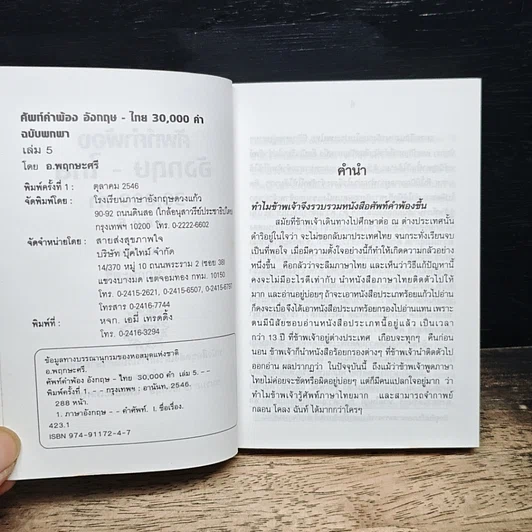 ศัพท์คำพ้อง อังกฤษ - ไทย 30,000 คำ
ฉบับพกพา
เล่ม 5
โดย อ.พฤกษะศรี
พิมพ์ครั้งที่ 1 : ตุลาคม 2546
จัดพิมพ์โดย : โรงเรียนภาษาอังกฤษดวงแก้ว
90-92 ถนนดินสอ (ใกล้อนุสาวรีย์ประชาธิปไตย)
กรุงเทพฯ 10200 โทร. 0-2222-6602
จัดจำหน่ายโดย : สายส่งสุขภาพใจ
บริษัท บุ๊คไทม์ จำกัด
14/370 หมู่ 10 ถนนพระราม 2 (ซอย 38)
แขวงบางมด เขตจอมทอง กทม. 10150
โทร. 0-2415-2621, 0-2415-6507, 0-2415-6797
โทรสาร 0-2416-7744
พิมพ์ที่ : หจก. เอมี่ เทรดดิ้ง
โทร. 0-2416-3294
ข้อมูลทางบรรณานุกรมของหอสมุดแห่งชาติ
อ.พฤกษะศรี.
ศัพท์คำพ้อง อังกฤษ - ไทย 30,000 คำ เล่ม 5. --
พิมพ์ครั้งที่ 1. -- กรุงเทพฯ : อานันท์, 2546.
288 หน้า.
1. ภาษาอังกฤษ - - คำศัพท์. I. ชื่อเรื่อง.
423.1
ISBN 974-91172-4-7
คำนำ
ทำไมข้าพเจ้าจึงรวบรวมหนังสือศัพท์คำพ้องขึ้น
สมัยที่ข้าพเจ้าเดินทางไปศึกษาต่อ ณ ต่างประเทศนั้น
ดำริอยู่ในใจว่า จะไม่ขอกลับมาประเทศไทย จนกระทั่งเรียนจบ
เป็นที่พอใจ เมื่อมีความตั้งใจอย่างนี้ก็ทำให้เกิดความกลัวอย่าง
หนึ่งขึ้น คือกลัวว่าจะลืมภาษาไทย และเห็นว่าวิธีแก้ปัญหานี้
คงจะไม่มีอะไรดีเท่ากับ นำหนังสือ ภาษาไทยติดตัวไปให้
มาก และอ่านอยู่บ่อยๆ ถ้าจะเอาหนังสือประเภทร้อยแก้วไปอ่าน
ก็คงจะเบื่อ จึงได้เอาหนังสือประเภทร้อยกรองไปอ่านแทน เพราะ
ตนมีนิสัยชอบอ่านหนังสือประเภทนี้อยู่แล้ว เป็นเวลา
กว่า 13 ปี ที่ข้าพเจ้าอยู่ต่างประเทศ เกือบจะทุกๆ คืนก่อน
นอน ข้าพเจ้าก็นำหนังสือร้อยกรองต่างๆ ที่ข้าพเจ้านำติดตัวไป
ออกอ่าน ผลปรากฏว่า ในปัจจุบันนี้ ถึงแม้ว่าข้าพเจ้าพูดภาษา
ไทยไม่ค่อยจะชัดหรือผิดอยู่บ่อยๆ แต่ก็มีคนแปลกใจอยู่มาก ว่า
ทำไมข้าพเจ้ารู้ศัพท์ภาษาไทยมาก และสามารถจำกาพย์
กลอน โคลง ฉันท์ ได้มากกว่าใครๆ